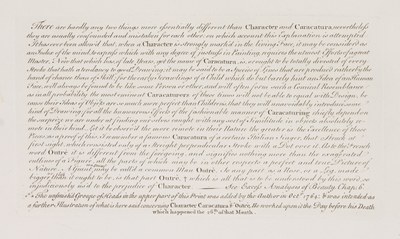 There are hardly any two things more essentially different than Character and Caracatura, nevertheless
they are usually confounded and mistaken for each other, on which account this Explanation is attempted
It has ever been allow'd that, when a Character is strongly mark'd in the living Face, it may be consider'd as
an Index of the mind, to express which with any degree of justness in Painting, requires the utmost Efforts of a great
Master; Now that which has, of late Years, got the name of Caracatura, is, or ought to be totally divested of every
Stroke that hath a tendency to good Drawing; it may be said to be a Species of Lines that are produc'd rather by the
hand of chance than of Skill; for the early Scrawlings of a Child which do but barely hint an Idea of an Human
Face, will always be found to be like some Person or other, and will often form such a Comical Resemblance
as in all probability the most eminent Caracaturers of these times will not be able to equal with Design, be-
cause their Ideas of Objects are so much more perfect than Childrens, that they will unavoidably introduce some
kind of Drawing; for all the humourous Effects of the fashionable manner of Caracaturing chiefly depend on
the surprize we are under at finding our selves caught with any sort of Similitude in objects absolutely re-
mote in their kind. Let it be observ'd the more remote in their Nature the greater is the Excellence of these
Pieces; as a proof of this, I remember a famous Caracatura of a certain Italian Singer, that Struck at
first sight, which consisted only of a Streight perpendicular Stroke with a Dot over it. As to the French
word Outré it is different from the foregoing, and signifies nothing more than the exagerated
outlines of a Figure, all the parts of which may be in other respects a perfect and true Picture of
Nature. A Giant may be call'd a common Man Outré. So any part, as a Nose, or a Leg, made
bigger than it ought to be, is that part Outré, which is all that is to be understood by this word, so
injudiciously us'd to the prejudice of Character. —— See Excess Analysis of Beauty, Chap. 6
The unfinish'd Groupe of Heads in the upper part of this Print was added by the Author in Octr. 1764; & was intended as
a further Illustration of what is here said concerning Character, Caracatura & Outré. He worked upon it the Day before his Death
which happened the 26th of that Month.